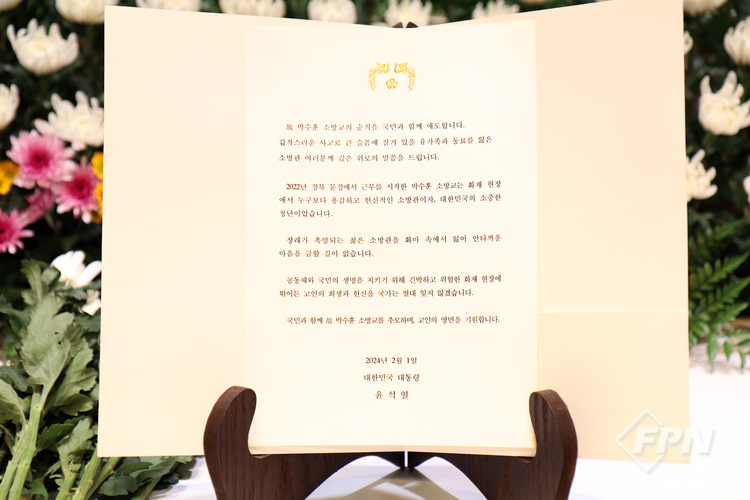 故 박수훈 소방교의 순직을 국민과 함께 애도합니다.
갑작스러운 사고로 큰 슬픔에 잠겨 있을 유가족과 동료를 잃은
소방관 여러분께 깊은 위로의 말씀을 드립니다.
2022년 경북 문경에서 근무를 시작한 박수훈 소방교는 화재 현장
에서 누구보다 용감하고 헌신적인 소방관이자, 대한민국의 소중한
청년이었습니다.
장래가 촉망되는 젊은 소방관을 화마 속에서 잃어 안타까운
마음을 금할 길이 없습니다.
공동체와 국민의 생명을 지키기 위해 긴박하고 위험한 화재 현장에
뛰어든 고인의 희생과 헌신을 국가는 절대 잊지 않겠습니다.
국민과 함께 故 박수훈 소방교를 추모하며, 고인의 영면을 기원합니다.
2024년 2월 1일
대한민국 대통령
윤석열
FPN